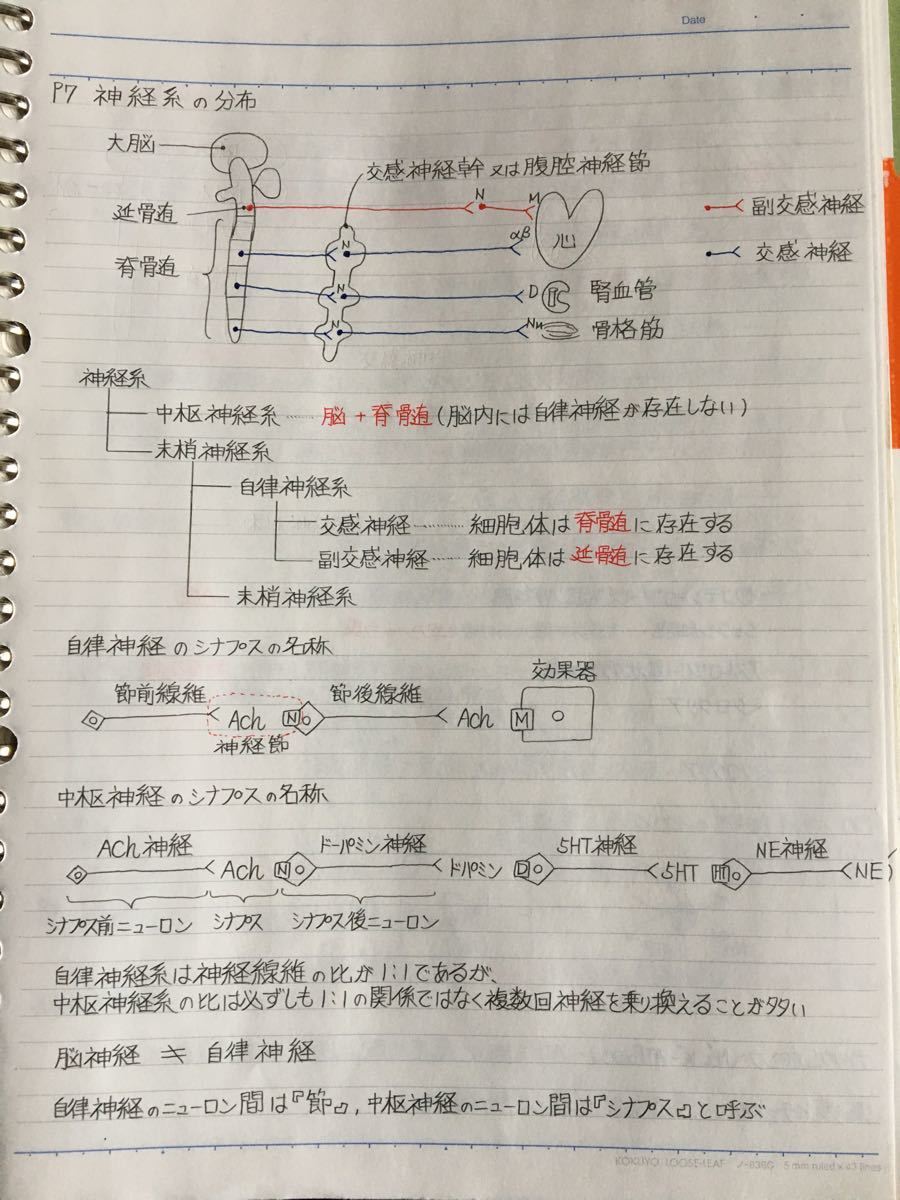 Date
P7 神経系の分布
大脳
交感神経幹又は腹腔神経節
延骨道 N M 心 副交感神経
脊骨道 N αβ 交感神経
N D 腎血管
N NM 骨格筋
神経系
中枢神経系 脳+脊骨道(脳内には自律神経が存在しない)
末梢神経系
自律神経系
交感神経 細胞体は脊骨道に存在する
副交感神経 細胞体は延骨道に存在する
末梢神経系
自律神経のシナプスの名称
効果器
節前線維 節後線維
Ach N Ach M
神経節
中枢神経のシナプスの名称
ACh神経 ドーパミン神経 5HT神経 NE神経
Ach N ドパミン D 5HT HT NE
シナプス前ニューロン シナプス シナプス後ニューロン
自律神経系は神経線維の比が1:1であるが、
中枢神経系の比は必ずしも1:1の関係ではなく複数回神経を乗り換えることが多い
脳神経 ≠ 自律神経
自律神経のニューロン間は『節』,中枢神経のニューロン間は『シナプス』と呼ぶ
KOKUYO LOOSE-LEAF ノ-836G 5 mm ruled × 43 lines